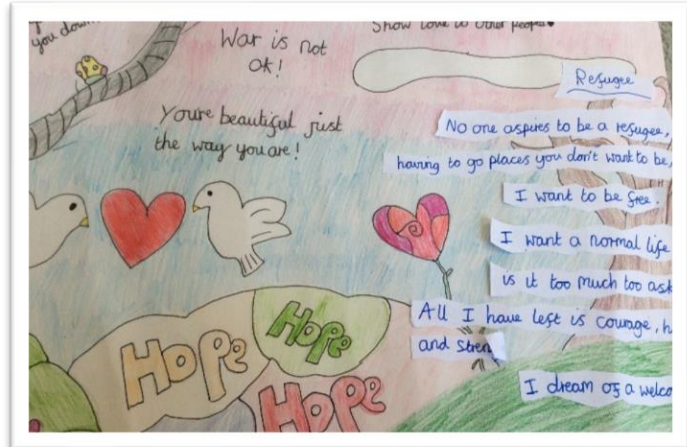 you down
War is not
ok!
Show love to other people
You're beautiful just
the way you are!
Refugee
No one aspires to be a refugee,
having to go places you don't want to be,
I want to be free.
I want a normal life
is it too much too ask
All I have left is courage, h
and stren
I dream of a welco
Hope
Hope
Hope